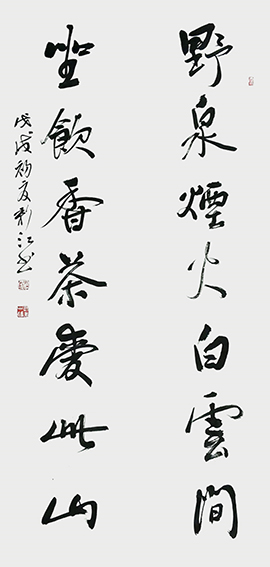 野泉煙火白雲間
坐飲香茶愛此山
戊戌初夏利江书